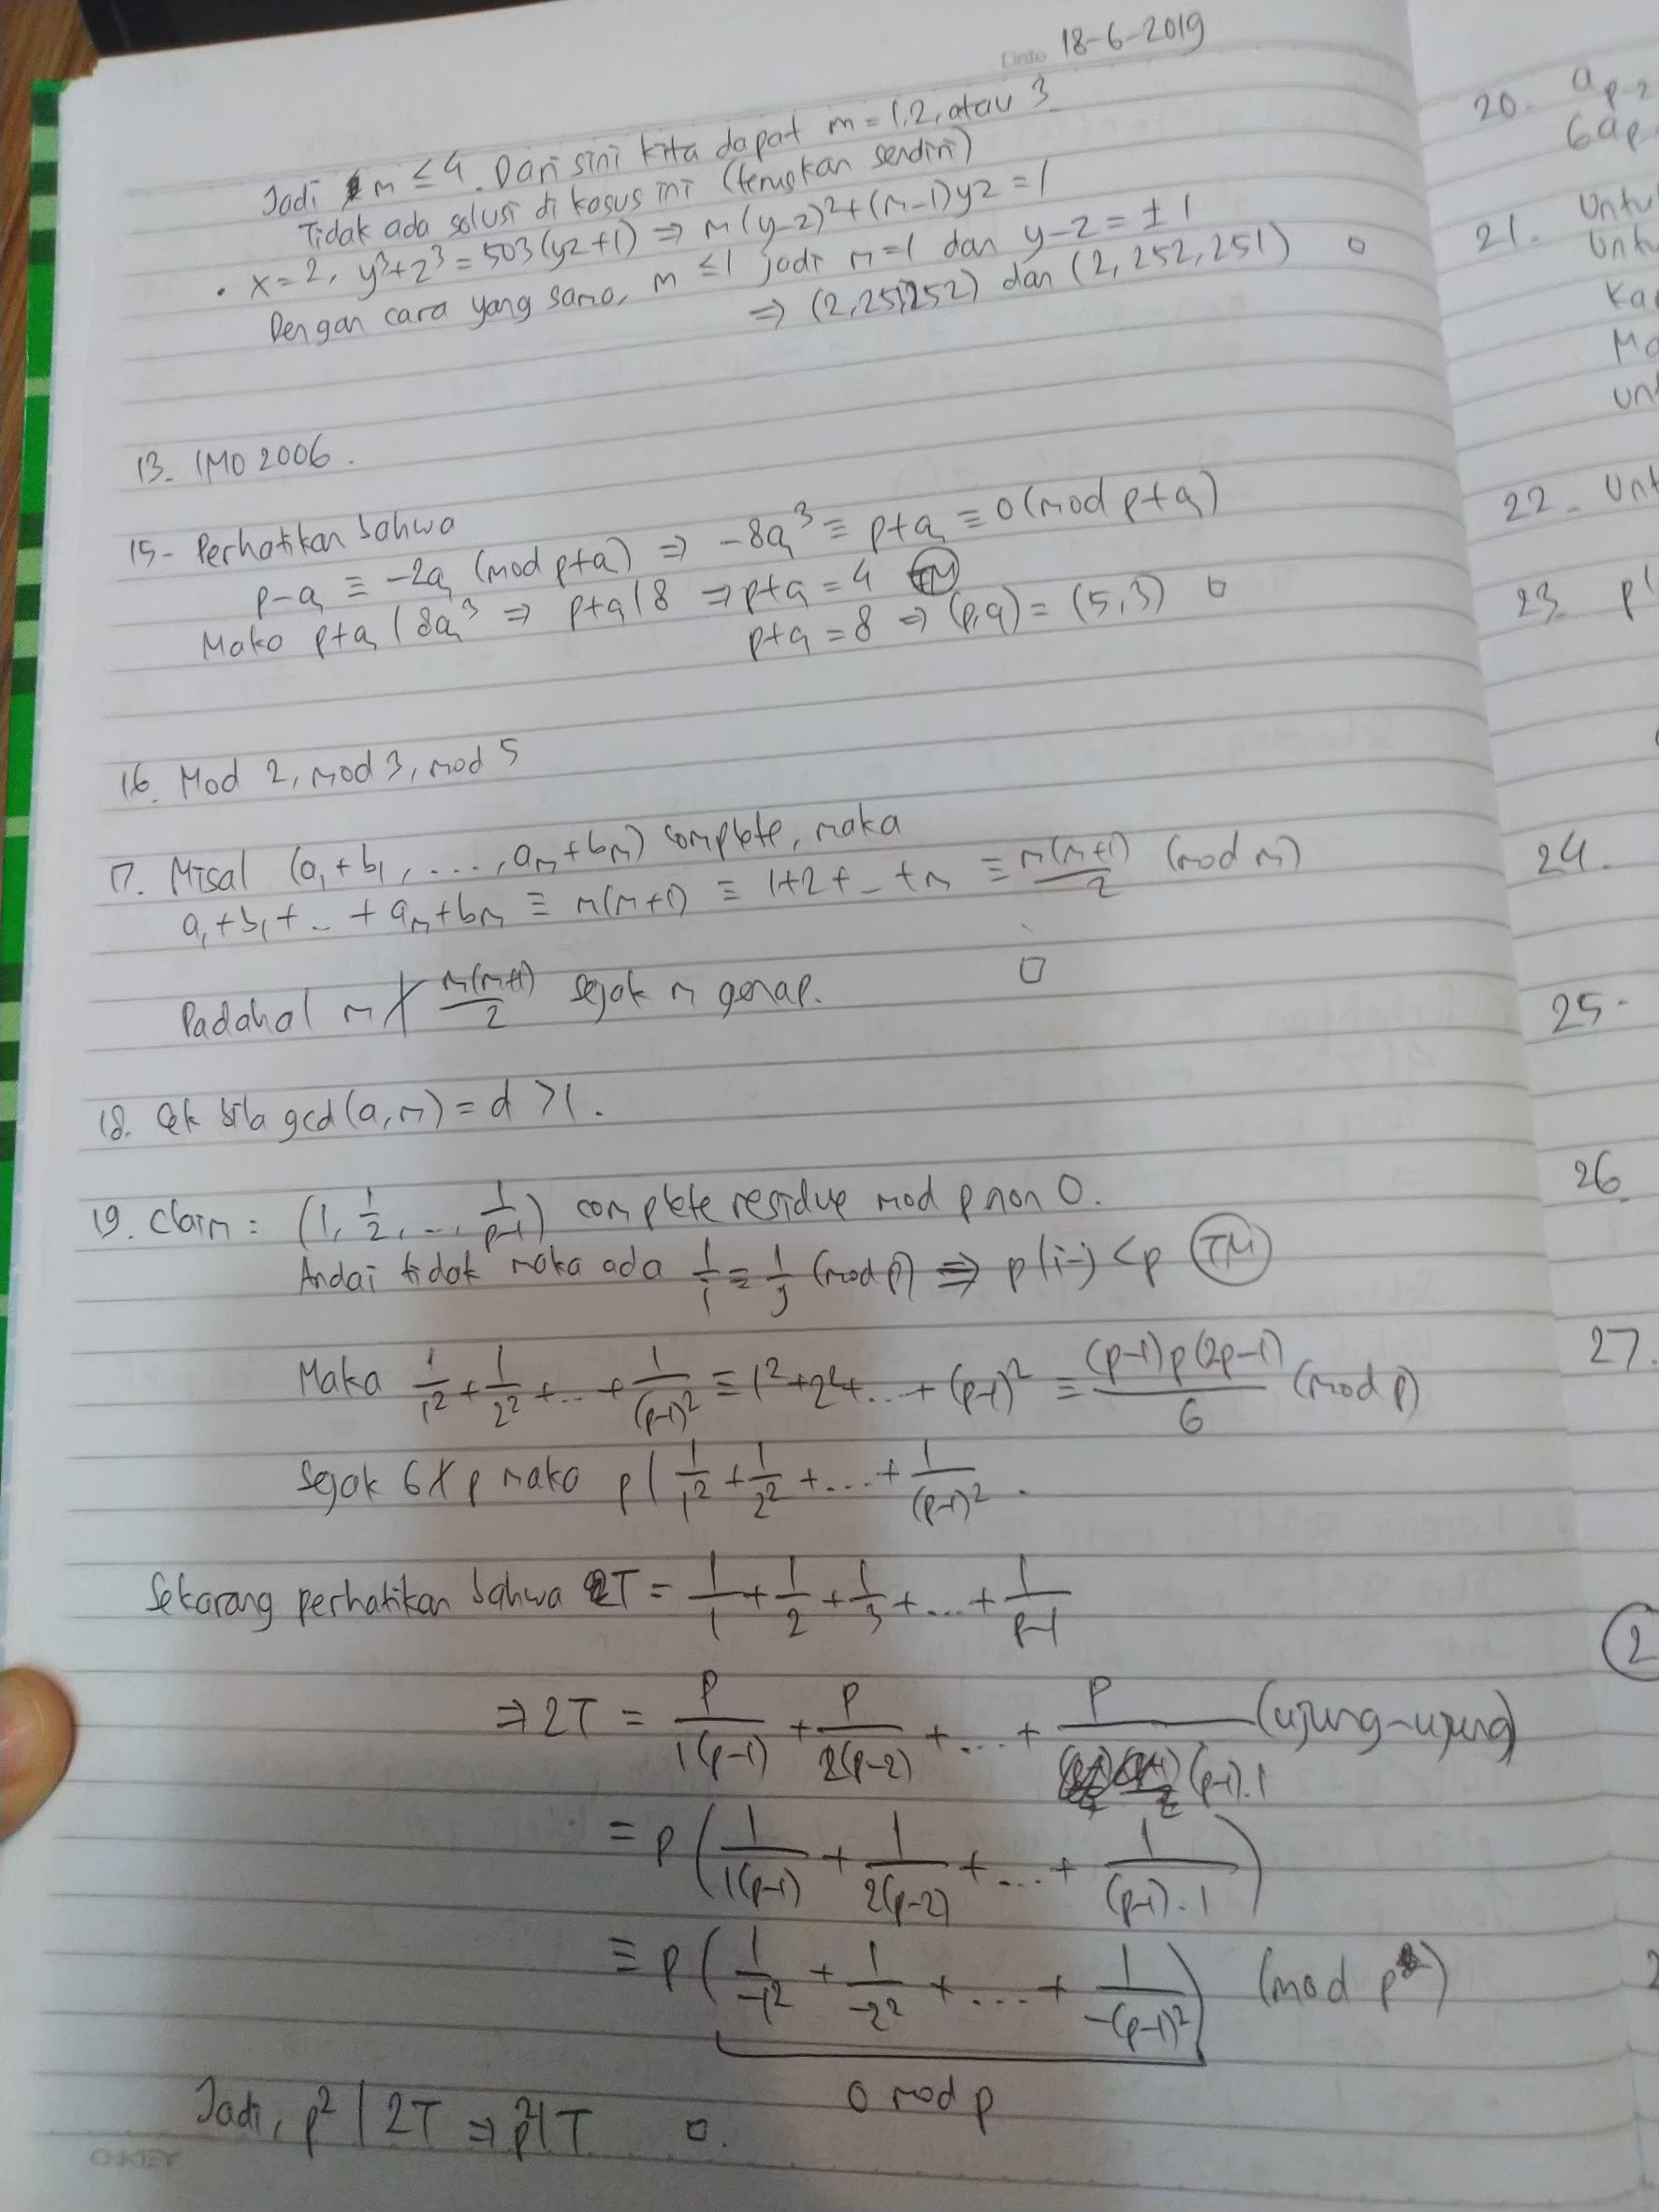 Date 18-6-2019
Jadi m ≤ 4. Dari sini kita dapat m = 1, 2, atau 3
Tidak ada solusi di kasus ini (teruskan sendiri)
• x = 2, y³+z³ = 503(yz+1) ⇒ m(y-z)²+(m-1)yz = 1
Dengan cara yang sama, m ≤ 1 jadi m=1 dan y-z = ±1
⇒ (2,251,252) dan (2, 252, 251) □
13. IMO 2006.
15- Perhatikan bahwa
p-q ≡ -2q (mod p+q) ⇒ -8q³ ≡ p+q ≡ 0 (mod p+q)
Maka p+q | 8q³ ⇒ p+q | 8 ⇒ p+q = 4 (TM)
p+q = 8 ⇒ (p,q) = (5,3) □
16. Mod 2, mod 3, mod 5
17. Misal (a₁+b₁, ...., aₘ+bₘ) complete, maka
a₁+b₁+ .. + aₘ+bₘ ≡ m(m+1) ≡ 1+2+ .. +m ≡ m(m+1)/2 (mod m)
Padahal m ∤ m(m+1)/2 sejak m genap. □
18. Cek bila gcd(a,m) = d > 1.
19. Claim : (1, 1/2, ..., 1/(p-1)) complete residue mod p non 0.
Andai tidak maka ada 1/i ≡ 1/j (mod p) ⇒ p | i-j < p (TM)
Maka 1/1² + 1/2² + ... + 1/(p-1)² ≡ 1²+2²+...+(p-1)² ≡ (p-1)p(2p-1)/6 (mod p)
Sejak 6 ∤ p maka p | 1/1² + 1/2² + .... + 1/(p-1)².
Sekarang perhatikan bahwa T = 1/1 + 1/2 + 1/3 + .... + 1/(p-1)
⇒ 2T = p/1(p-1) + p/2(p-2) + .... + p/(p-1).1 (ujung-ujung)
= p(1/1(p-1) + 1/2(p-2) + .... + 1/(p-1).1)
≡ p(1/-1² + 1/-2² + .... + 1/-(p-1)²) (mod p)
0 mod p
Jadi, p² | 2T ⇒ p² | T □.
OKEY
20. a
6a
21. Untu
Untu
Ka
Ma
un
22. Unt
23. p
24.
25.
26.
27.
2